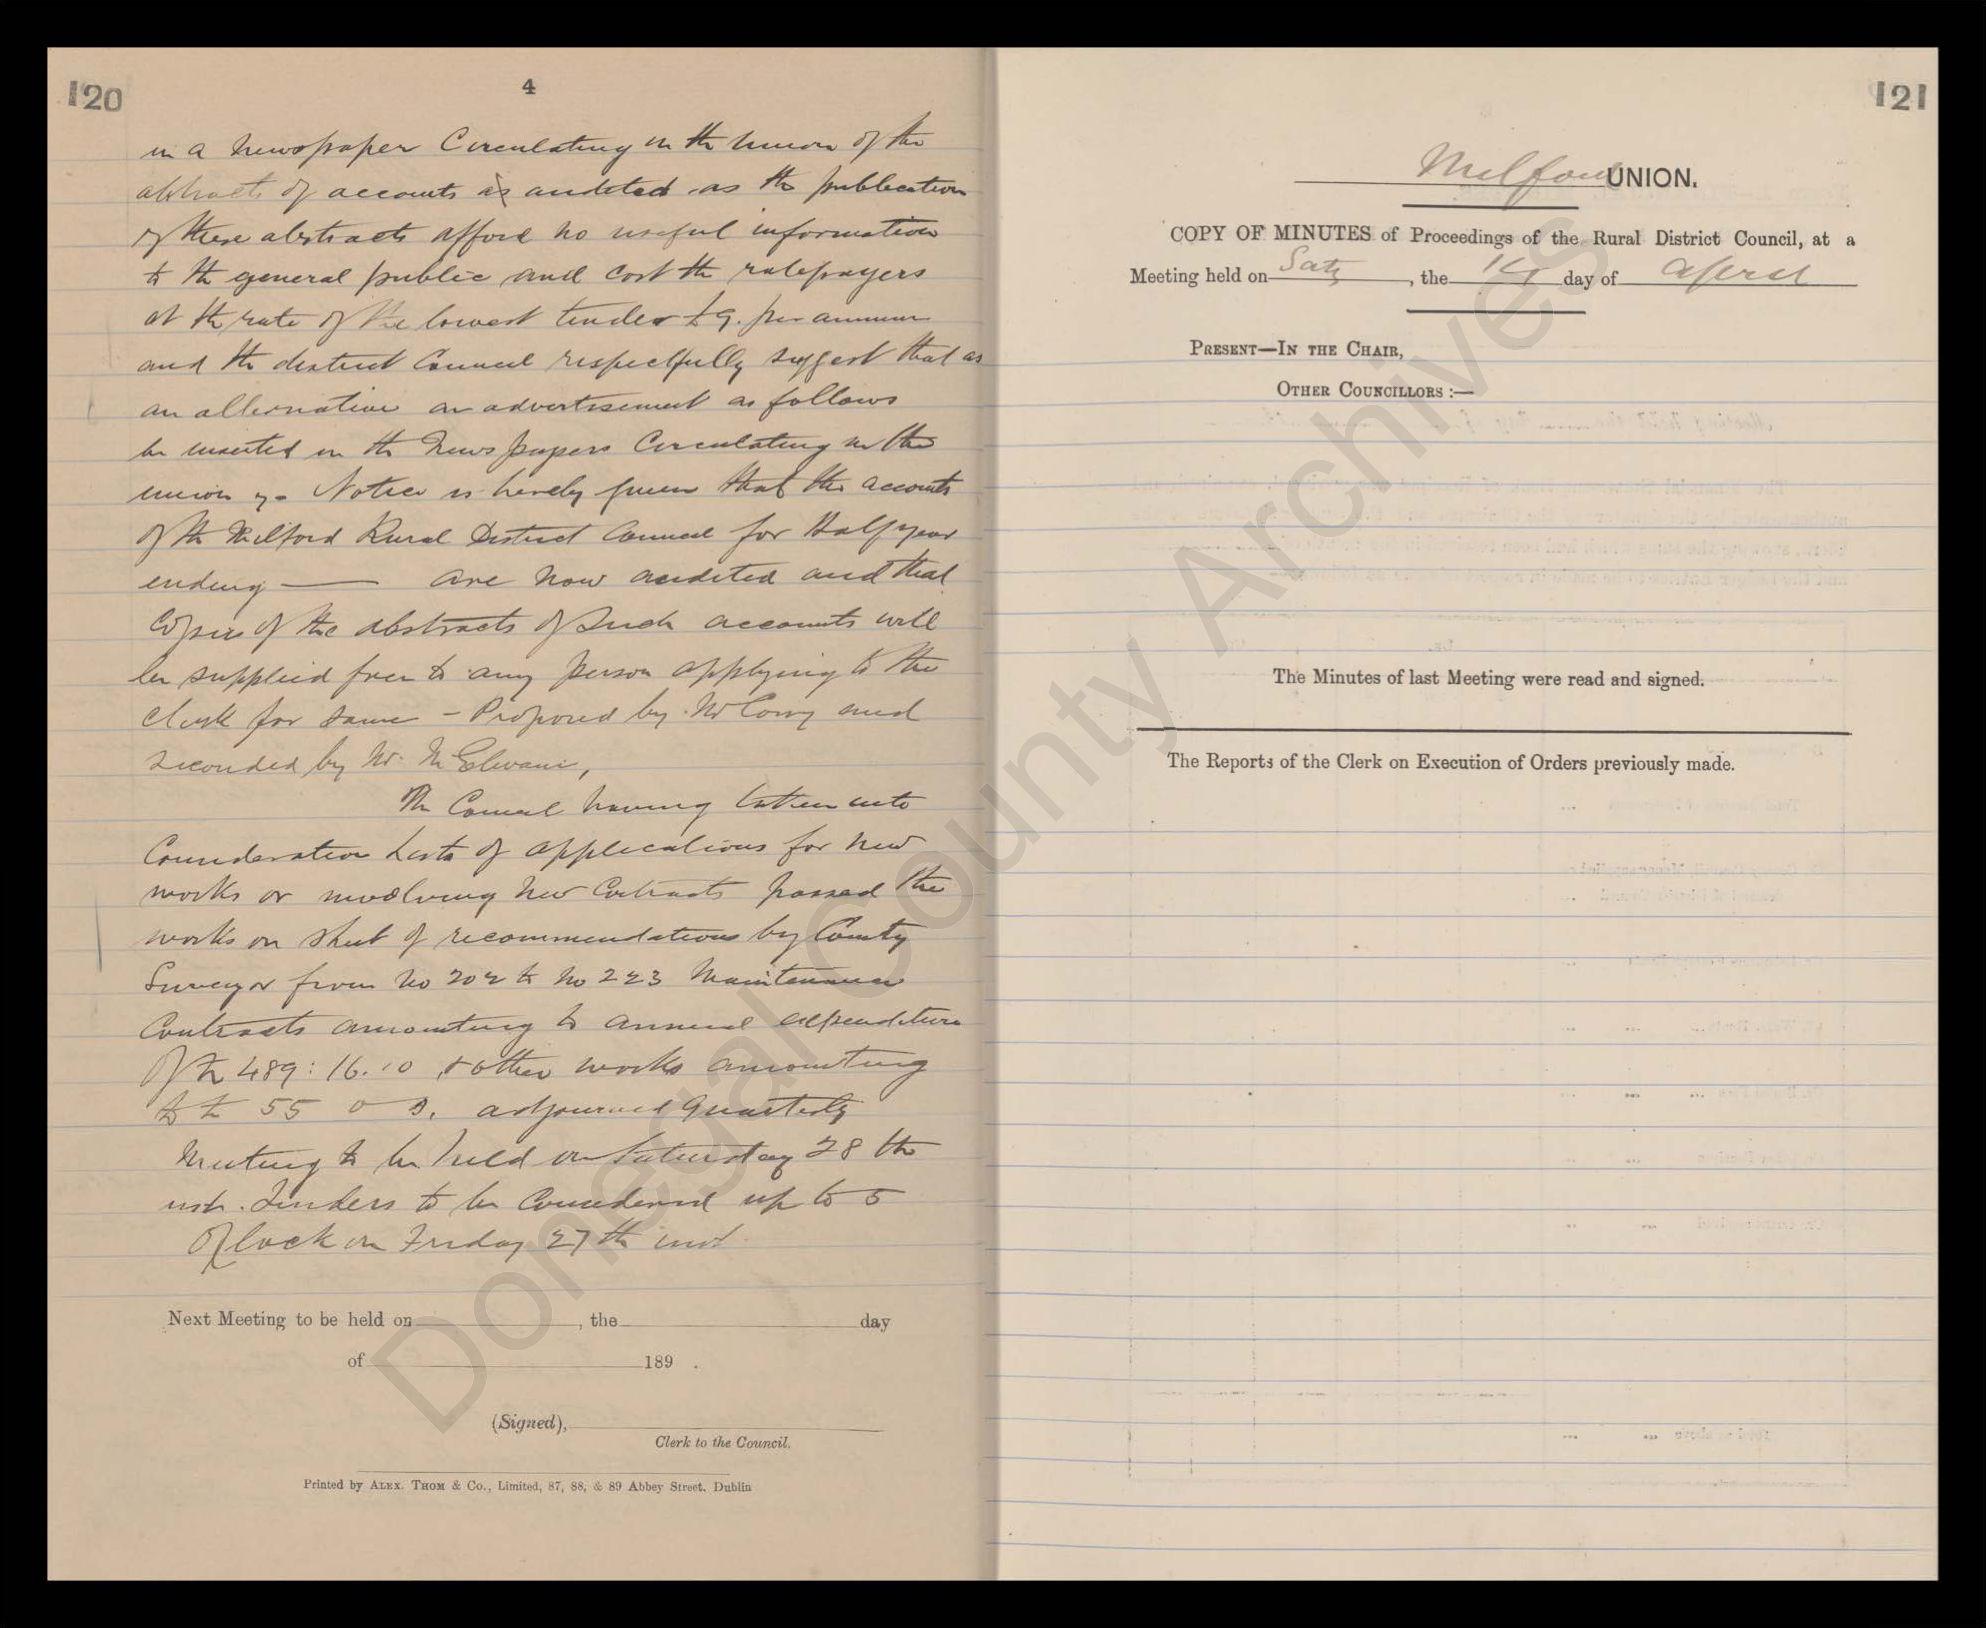 120
4
in a Newspaper Circulating in the Union of the
abstract of accounts as audited as the publication
of these abstracts afford no useful information
to the general public and cost the ratepayers
at the rate of the lowest tender £9. per annum
and the district Council respectfully suggest that as
an alternative an advertisement as follows
be inserted in the News papers Circulating in the
union :- Notice is hereby given that the accounts
of the Milford Rural District Council for Half year
ending ——— are now audited and that
Copies of the abstracts of such accounts will
be supplied free to any person applying to the
Clerk for same - Proposed by Mr Corry and
seconded by Mr. McElwaine,
The Council having taken into
Consideration Lists of applications for new
works or involving new Contracts passed the
works on sheet of recommendations by County
Surveyor from No 202 to No 223 Maintenance
Contracts amounting to annual expenditure
of £489:16.10 & other works amounting
to £55 0 0. adjourned Quarterly
Meeting to be held on Saturday 28 th
inst. Tenders to be Considered up to 5
O'Clock on Friday 27 th inst
Next Meeting to be held on , the day
of 189 .
(Signed),
Clerk to the Council.
Printed by ALEX. THOM & Co., Limited, 87, 88, & 89 Abbey Street, Dublin
121
Milford UNION.
COPY OF MINUTES of Proceedings of the Rural District Council, at a
Meeting held on Saty , the 14 day of April
PRESENT—IN THE CHAIR,
OTHER COUNCILLORS :—
The Minutes of last Meeting were read and signed.
The Reports of the Clerk on Execution of Orders previously made.
Donegal County Archives